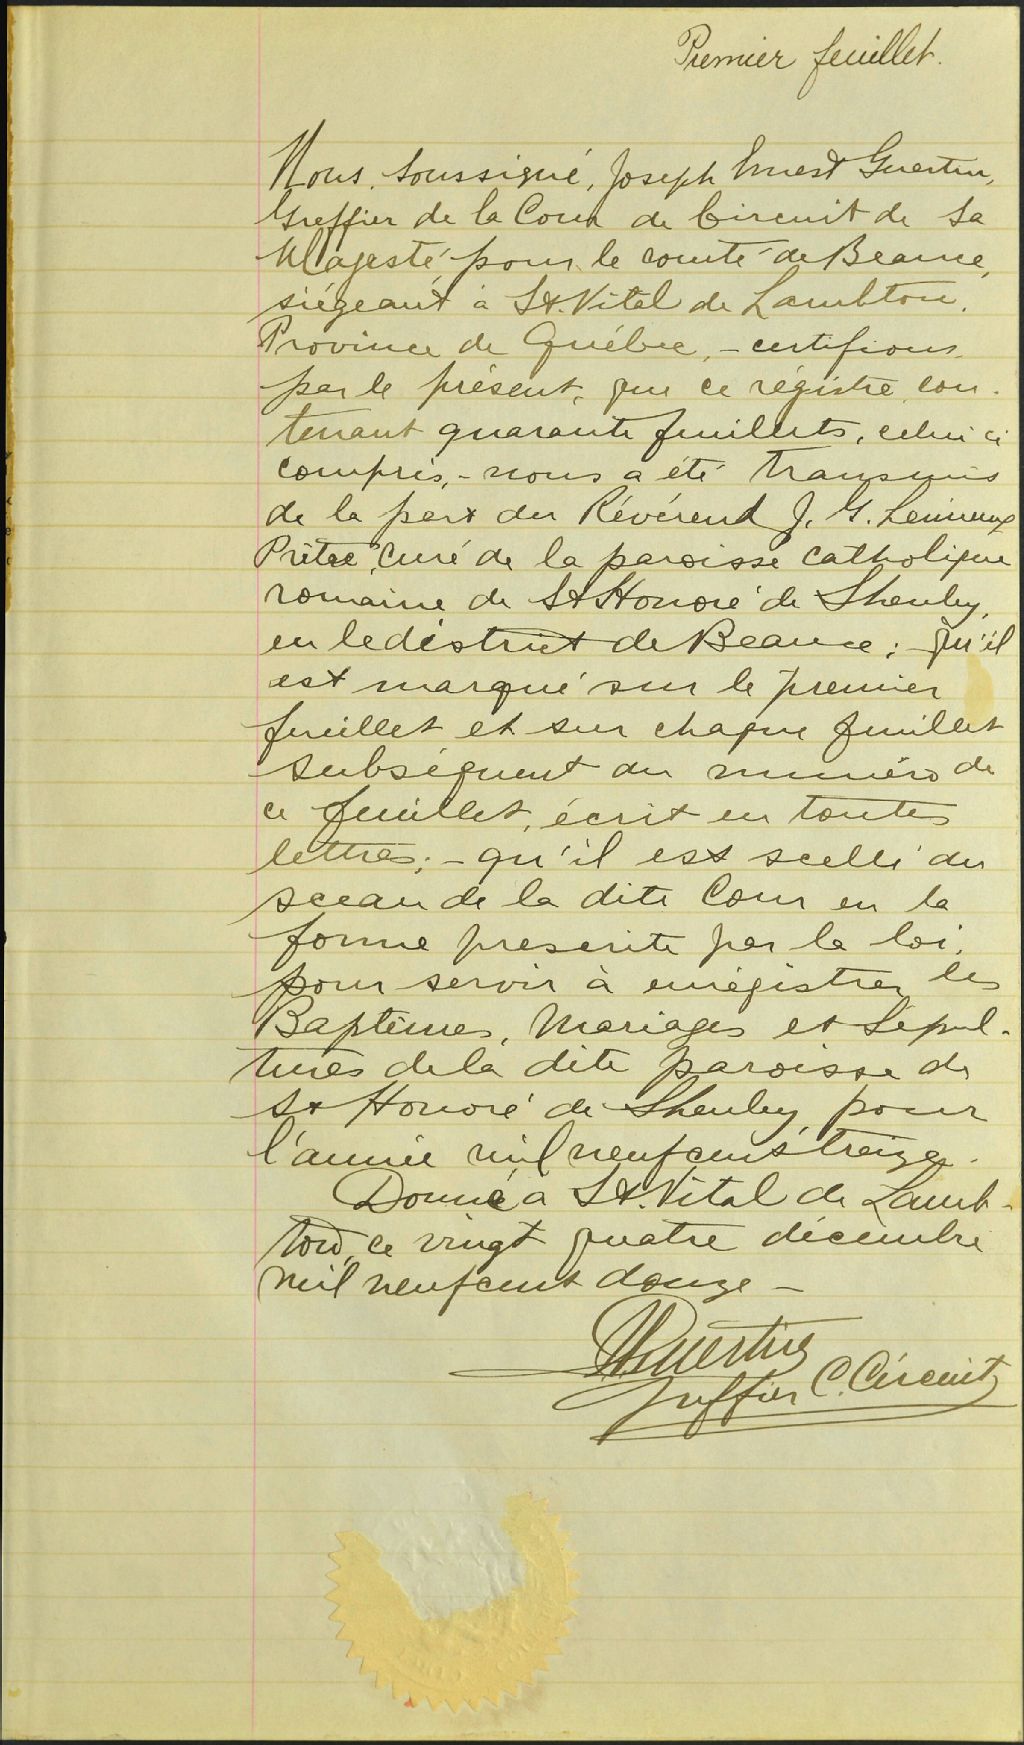 Premier feuillet.
Nous, soussigné, Joseph Ernest Guertin,
Greffier de la Cour de Circuit de Sa
Majesté, pour le comté de Beauce,
siégeant à St. Vital de Lambton,
Province de Québec, - certifions
par le présent, que ce régistre, con-
tenant quarante feuillets, celui ci
compris, - nous a été transmis
de la part du Révérend J. G. Lemieux
Prêtre, Curé de la paroisse catholique
romaine de St Honoré de Shenley,
en le district de Beauce; - qu'il
est marqué sur le premier
feuillet et sur chaque feuillet
subséquent du numéro de
ce feuillet, écrit en toutes
lettres; - qu'il est scellé du
sceau de la dite Cour en la
forme prescrite par la loi,
pour servir à enrégistrer les
Baptêmes, Mariages et Sépul-
tures de la dite paroisse de
St Honoré de Shenley, pour
l'année mil neuf cents treize.
Donné à St. Vital de Lamb-
ton, ce vingt quatre décembre
mil neuf cent douze -
Guertin
Greffier C. Circuit